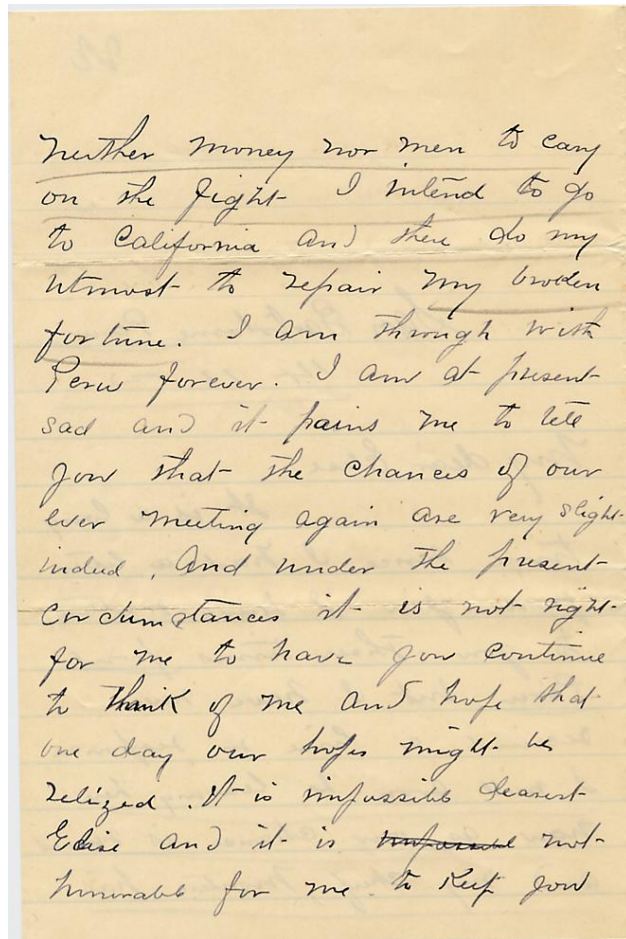 neither money nor men to cary
on the fight I intend to go
to California and there do my
utmost to repair my broken
fortune. I am through with
Peru forever. I am at present
sad and it pains me to tele
you that the chances of our
ever meeting again are very slight
indeed, And under the present
Circumstances it is not right
for me to have you continue
to think of me and hope that
one day our hopes might be
relized. It is impossible dearest
Elise and it is impossible not
honorable for me to keep you